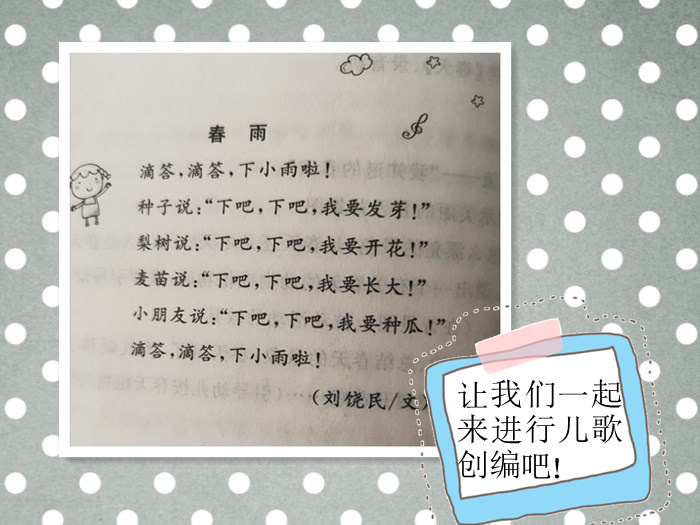 春 雨
滴答,滴答,下小雨啦!
种子说:“下吧,下吧,我要发芽!”
梨树说:“下吧,下吧,我要开花!”
麦苗说:“下吧,下吧,我要长大!”
小朋友说:“下吧,下吧,我要种瓜!”
滴答,滴答,下小雨啦!
(刘饶民/文)
让我们一起
来进行儿歌
创编吧!